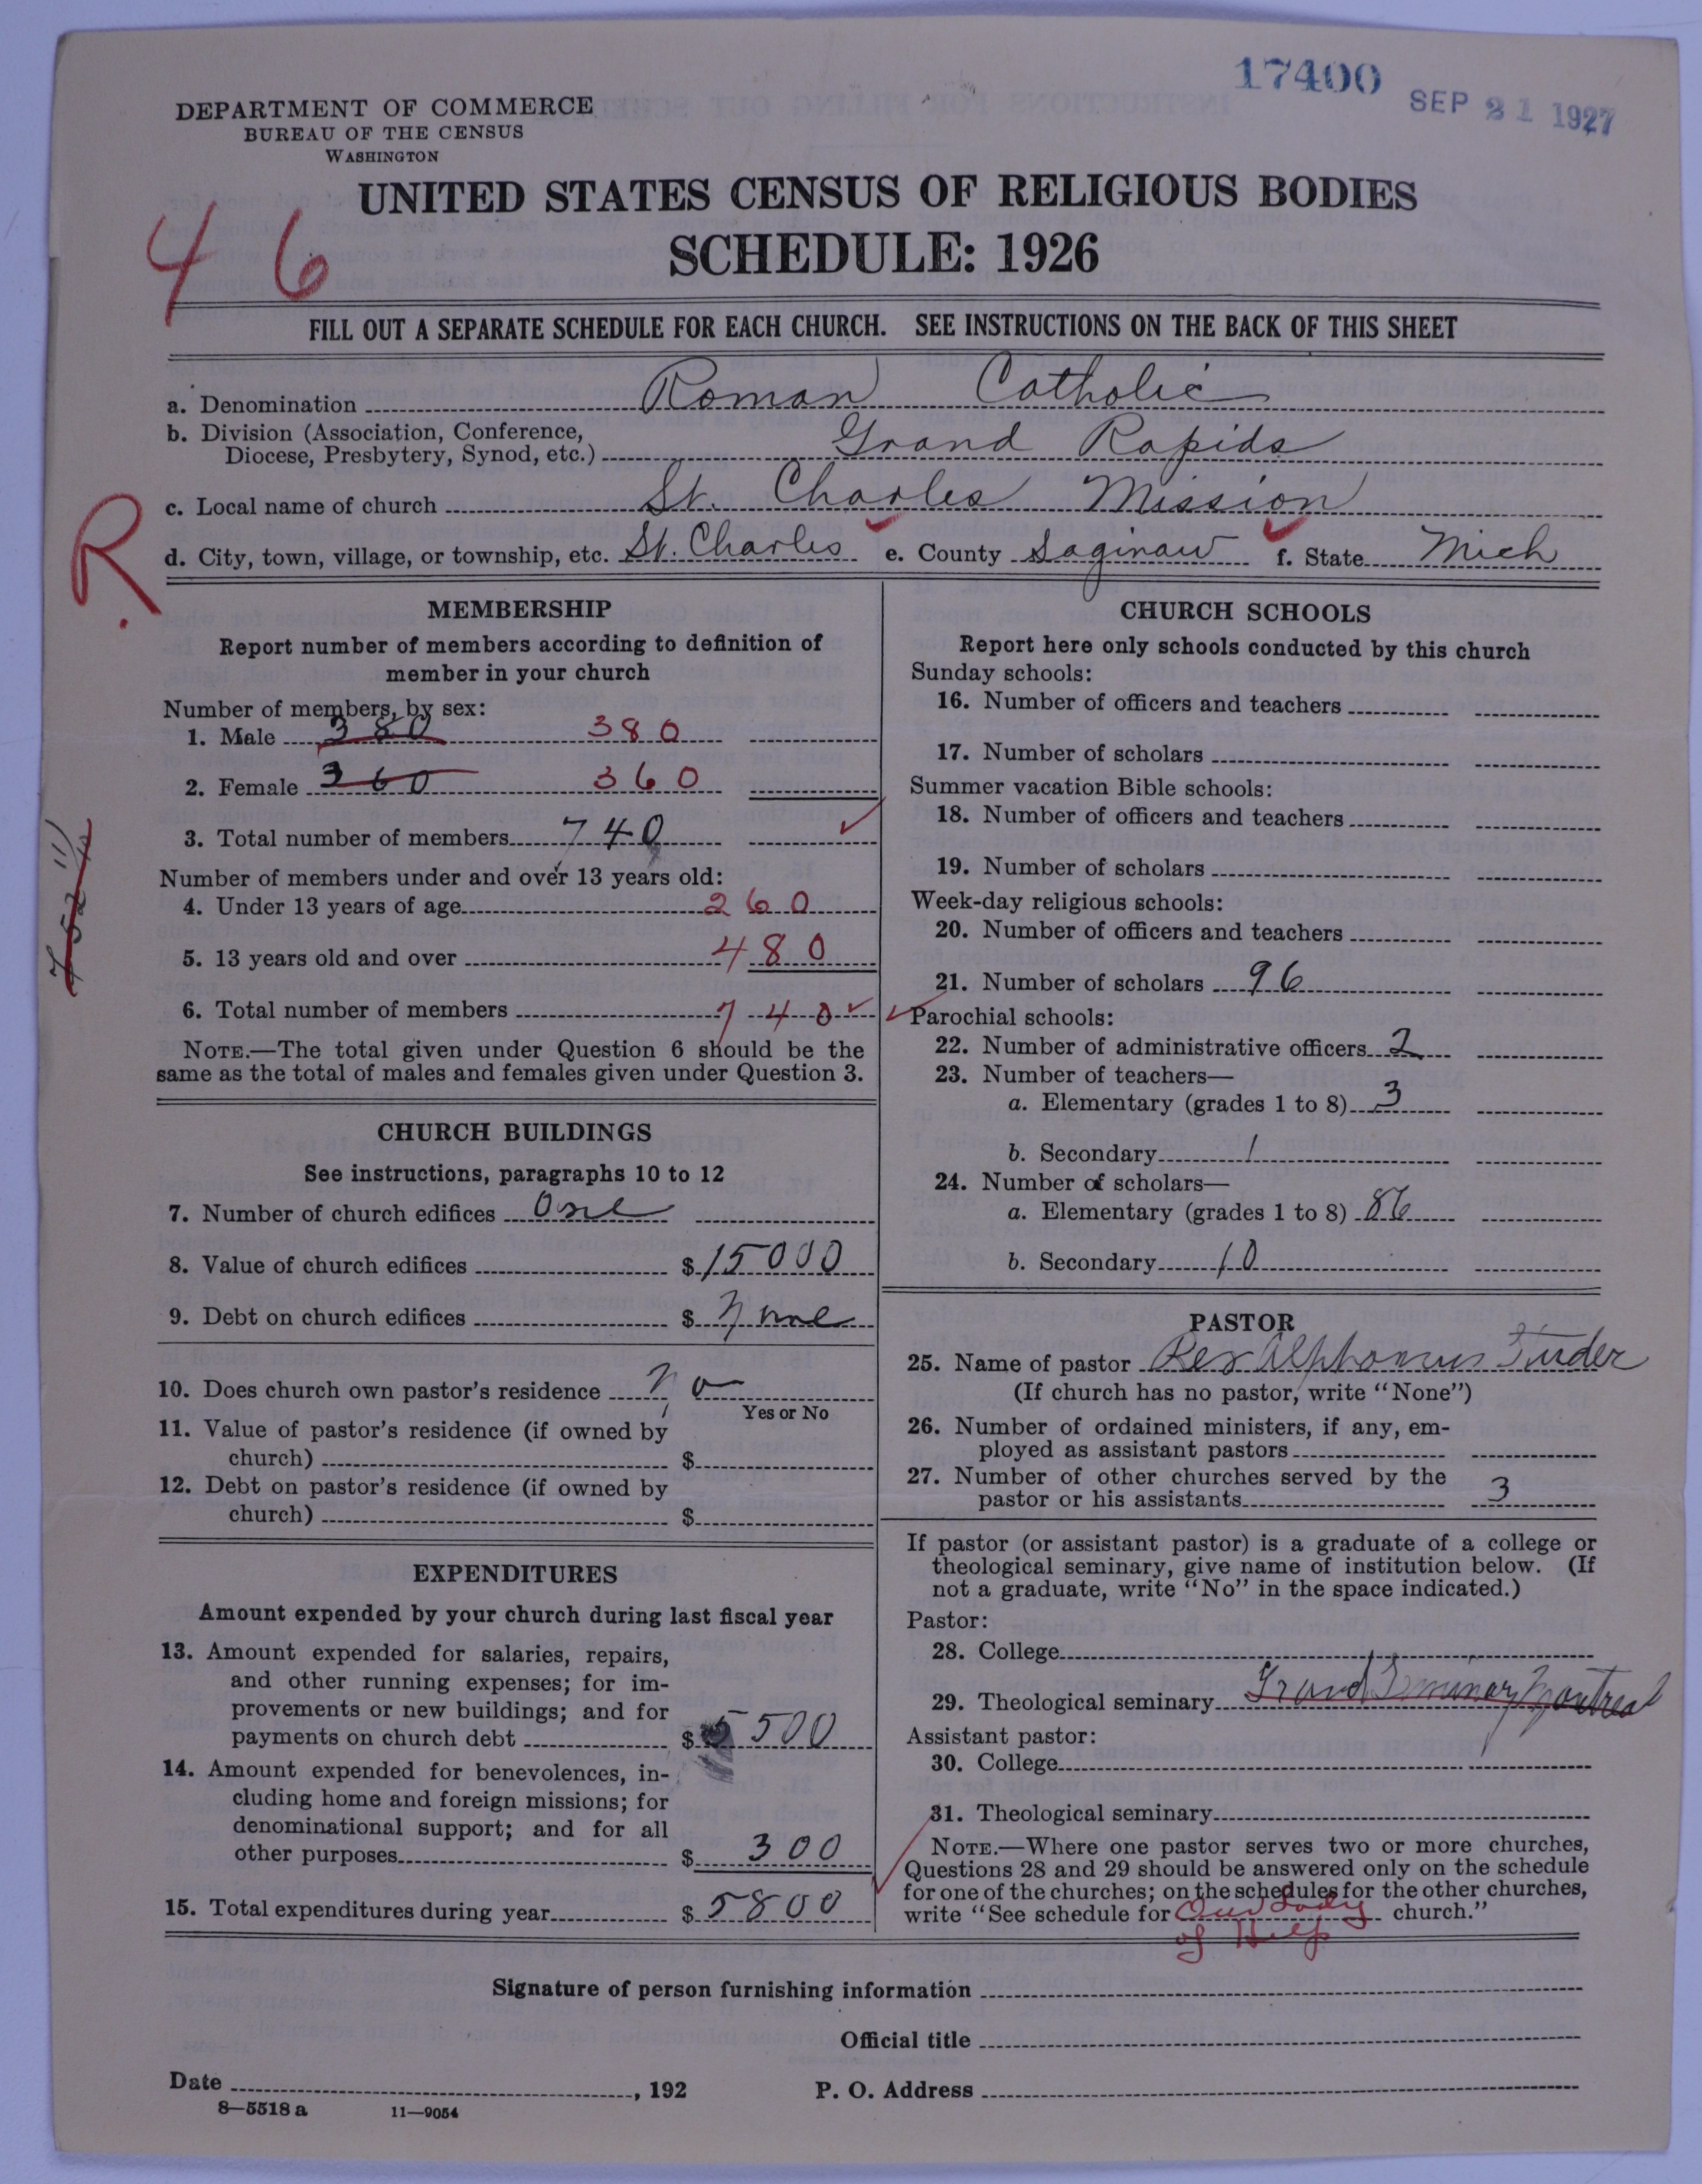 17400
SEP 21 1927
DEPARTMENT OF COMMERCE
BUREAU OF THE CENSUS
WASHINGTON
UNITED STATES CENSUS OF RELIGIOUS BODIES
SCHEDULE: 1926
46
FILL OUT A SEPARATE SCHEDULE FOR EACH CHURCH. SEE INSTRUCTIONS ON THE BACK OF THIS SHEET
a. Denomination Roman Catholic
b. Division (Association, Conference,
Diocese, Presbytery, Synod, etc.) Grand Rapids
c. Local name of church St. Charles Mission
R.
d. City, town, village, or township, etc. St. Charles e. County Saginaw f. State Mich
MEMBERSHIP
Report number of members according to definition of
member in your church
Number of members, by sex:
1. Male 380 380
2. Female 360 360
3. Total number of members 740
Number of members under and over 13 years old:
4. Under 13 years of age 260
5. 13 years old and over 480
6. Total number of members 740
NOTE.—The total given under Question 6 should be the
same as the total of males and females given under Question 3.
CHURCH BUILDINGS
See instructions, paragraphs 10 to 12
7. Number of church edifices One
8. Value of church edifices $15000
9. Debt on church edifices $None
10. Does church own pastor's residence No
Yes or No
11. Value of pastor's residence (if owned by
church) $
12. Debt on pastor's residence (if owned by
church) $
EXPENDITURES
Amount expended by your church during last fiscal year
13. Amount expended for salaries, repairs,
and other running expenses; for im-
provements or new buildings; and for
payments on church debt $5500
14. Amount expended for benevolences, in-
cluding home and foreign missions; for
denominational support; and for all
other purposes $300
15. Total expenditures during year $5800
CHURCH SCHOOLS
Report here only schools conducted by this church
Sunday schools:
16. Number of officers and teachers
17. Number of scholars
Summer vacation Bible schools:
18. Number of officers and teachers
19. Number of scholars
Week-day religious schools:
20. Number of officers and teachers
21. Number of scholars 96
Parochial schools:
22. Number of administrative officers 2
23. Number of teachers—
a. Elementary (grades 1 to 8) 3
b. Secondary 1
24. Number of scholars—
a. Elementary (grades 1 to 8) 86
b. Secondary 10
PASTOR
25. Name of pastor Rev Alphonsus
(If church has no pastor, write "None")
26. Number of ordained ministers, if any, em-
ployed as assistant pastors
27. Number of other churches served by the
pastor or his assistants 3
If pastor (or assistant pastor) is a graduate of a college or
theological seminary, give name of institution below. (If
not a graduate, write "No" in the space indicated.)
Pastor:
28. College
29. Theological seminary Grand Seminary Montreal
Assistant pastor:
30. College
31. Theological seminary
NOTE.—Where one pastor serves two or more churches,
Questions 28 and 29 should be answered only on the schedule
for one of the churches; on the schedules for the other churches,
write "See schedule for Our Lady church."
of Help
Signature of person furnishing information
Official title
Date , 192
P. O. Address
8—5518 a 11—9054